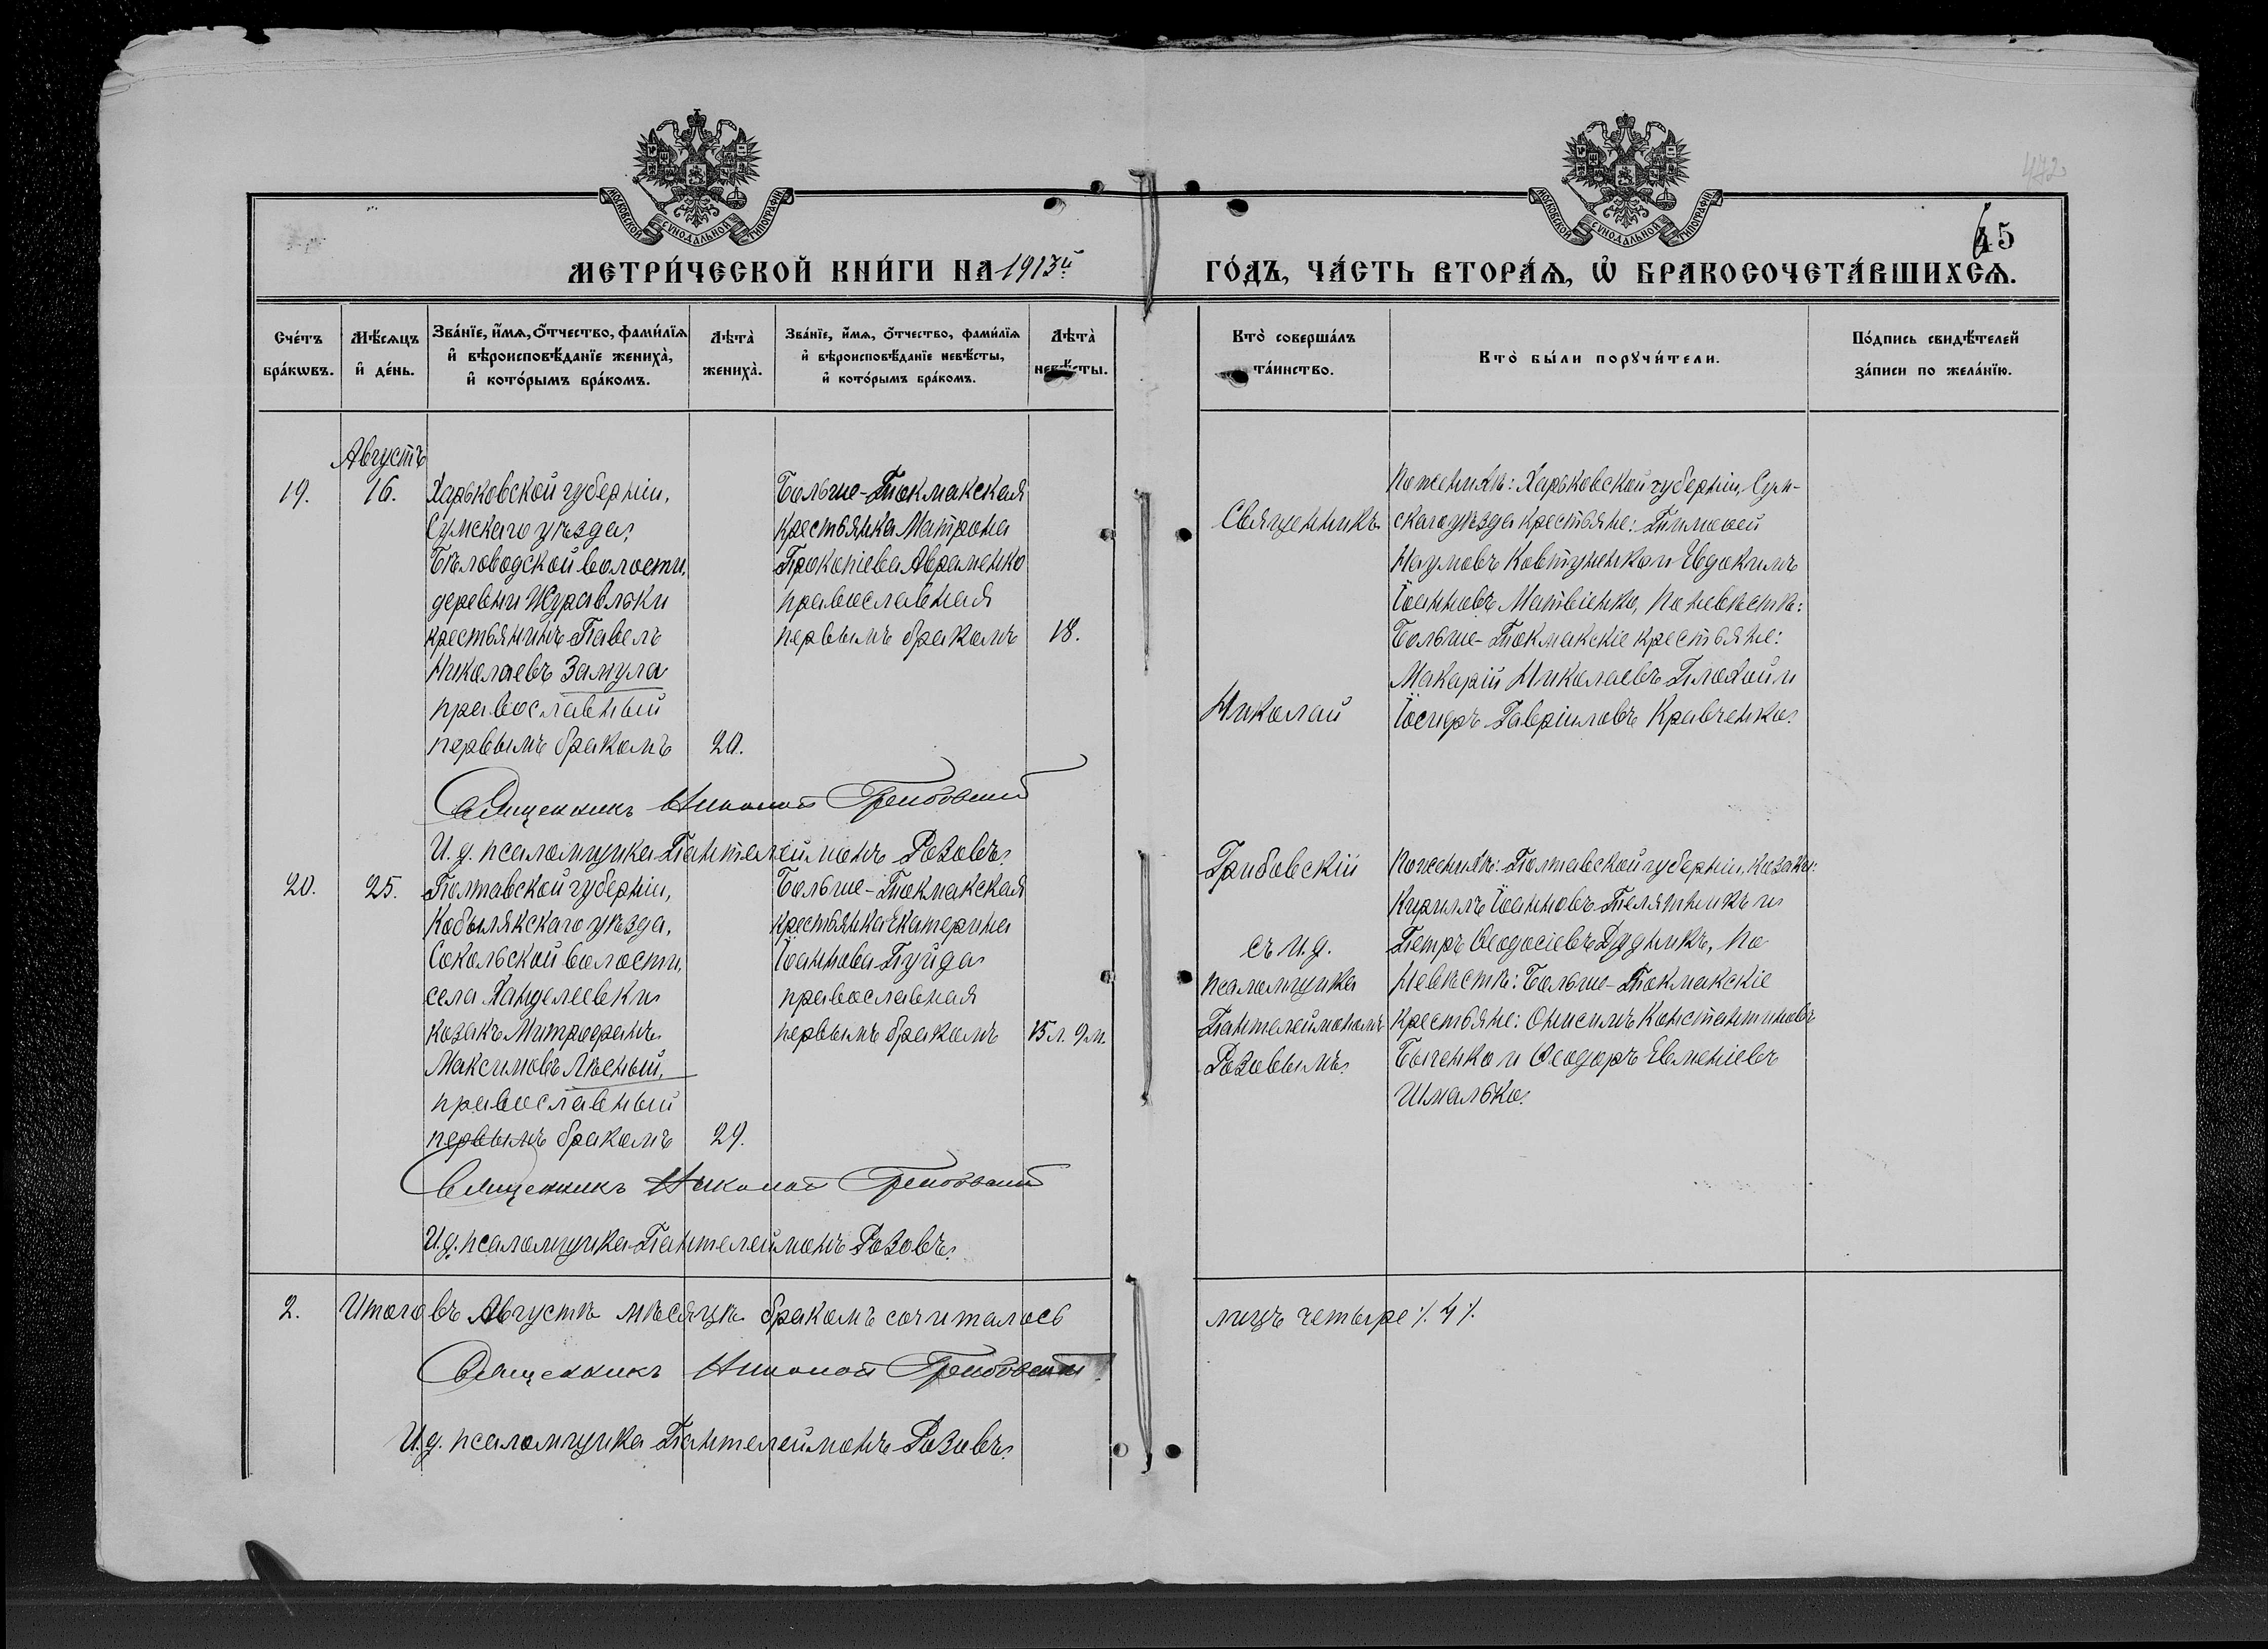 МОСКОВСКОЙ СУНОДАЛЬНОЙ ТИПОГРАФІИ
МОСКОВСКОЙ СУНОДАЛЬНОЙ ТИПОГРАФІИ
472
45
МЕТРИ́ЧЕСКОЙ КНИ́ГИ НА 1913й ГО́ДЪ, ЧА́СТЬ ВТОРА́Ѧ, Ѽ БРАКОСОЧЕТА́ВШИХСѦ.
Сче́тъ бра́кѡвъ.
Мѣ́сѧцъ и҆ де́нь.
Зва́нїе, и҆́мѧ, о҆́тчество, фами́лїѧ и҆ вѣроисповѣ́данїе жениха̀, и҆ кото́рымъ бра́комъ.
Лѣта̀ жениха̀.
Зва́нїе, и҆́мѧ, о҆́тчество, фами́лїѧ и҆ вѣроисповѣ́данїе невѣ́сты, и҆ кото́рымъ бра́комъ.
Лѣта̀ невѣ́сты.
Кто̀ соверша́лъ та́инство.
Кто̀ бы́ли порꙋчи́тели.
По́дпись свидѣ́телей за́писи по жела́нїю.
Августъ
19.
16.
Харьковской губерніи,
Сумскаго уѣзда,
Бѣловодской волости,
деревни Журавльки
крестьянинъ Павелъ
Николаевъ Замула
православный
первымъ бракомъ
20.
Больше-Токмакская
крестьянка Матрона
Прокопіева Авраменко
православная
первымъ бракомъ
18.
Священникъ
Николай
Грибовскій
съ и.д.
псаломщика
Пантелеймономъ
Розовымъ.
По женихѣ: Харьковской губерніи, Сум-
скаго уѣзда крестьяне: Тимоѳей
Наумовъ Ковтуненко и Евдокимъ
Іоанновъ Матвіенко, по невѣстѣ:
Больше-Токмакскіе крестьяне:
Макарій Николаевъ Плохой и
Іосифъ Гавріиловъ Кравченко.
Священникъ Николай Грибовскій
И. д. псаломщика Пантелеймонъ Розовъ.
20.
25.
Полтавской губерніи,
Кобылякскаго уѣзда,
Сокольской волости,
села Ханделеевки
козакъ Митрофанъ
Максимовъ Лѣсный,
православный
первымъ бракомъ
29.
Больше-Токмакская
крестьянка Екатерина
Іоаннова Пуйда
православная
первымъ бракомъ
15 л. 9 м.
По женихѣ: Полтавской губерніи, козаки:
Кириллъ Іоанновъ Телятникъ и
Петръ Ѳеодосіевъ Дудникъ, по
невѣстѣ: Больше-Токмакскіе
крестьяне: Онисимъ Константиновъ
Быченко и Ѳеодоръ Евменіевъ
Шмалько.
Священникъ Николай Грибовскій
И.д. псаломщика Пантелеймонъ Розовъ.
2.
Итого въ Августѣ мѣсяцѣ бракомъ сочиталось
лицъ четыре ⁒ 4 ⁒
Священникъ Николай Грибовскій
И.д. псаломщика Пантелеймонъ Розовъ.